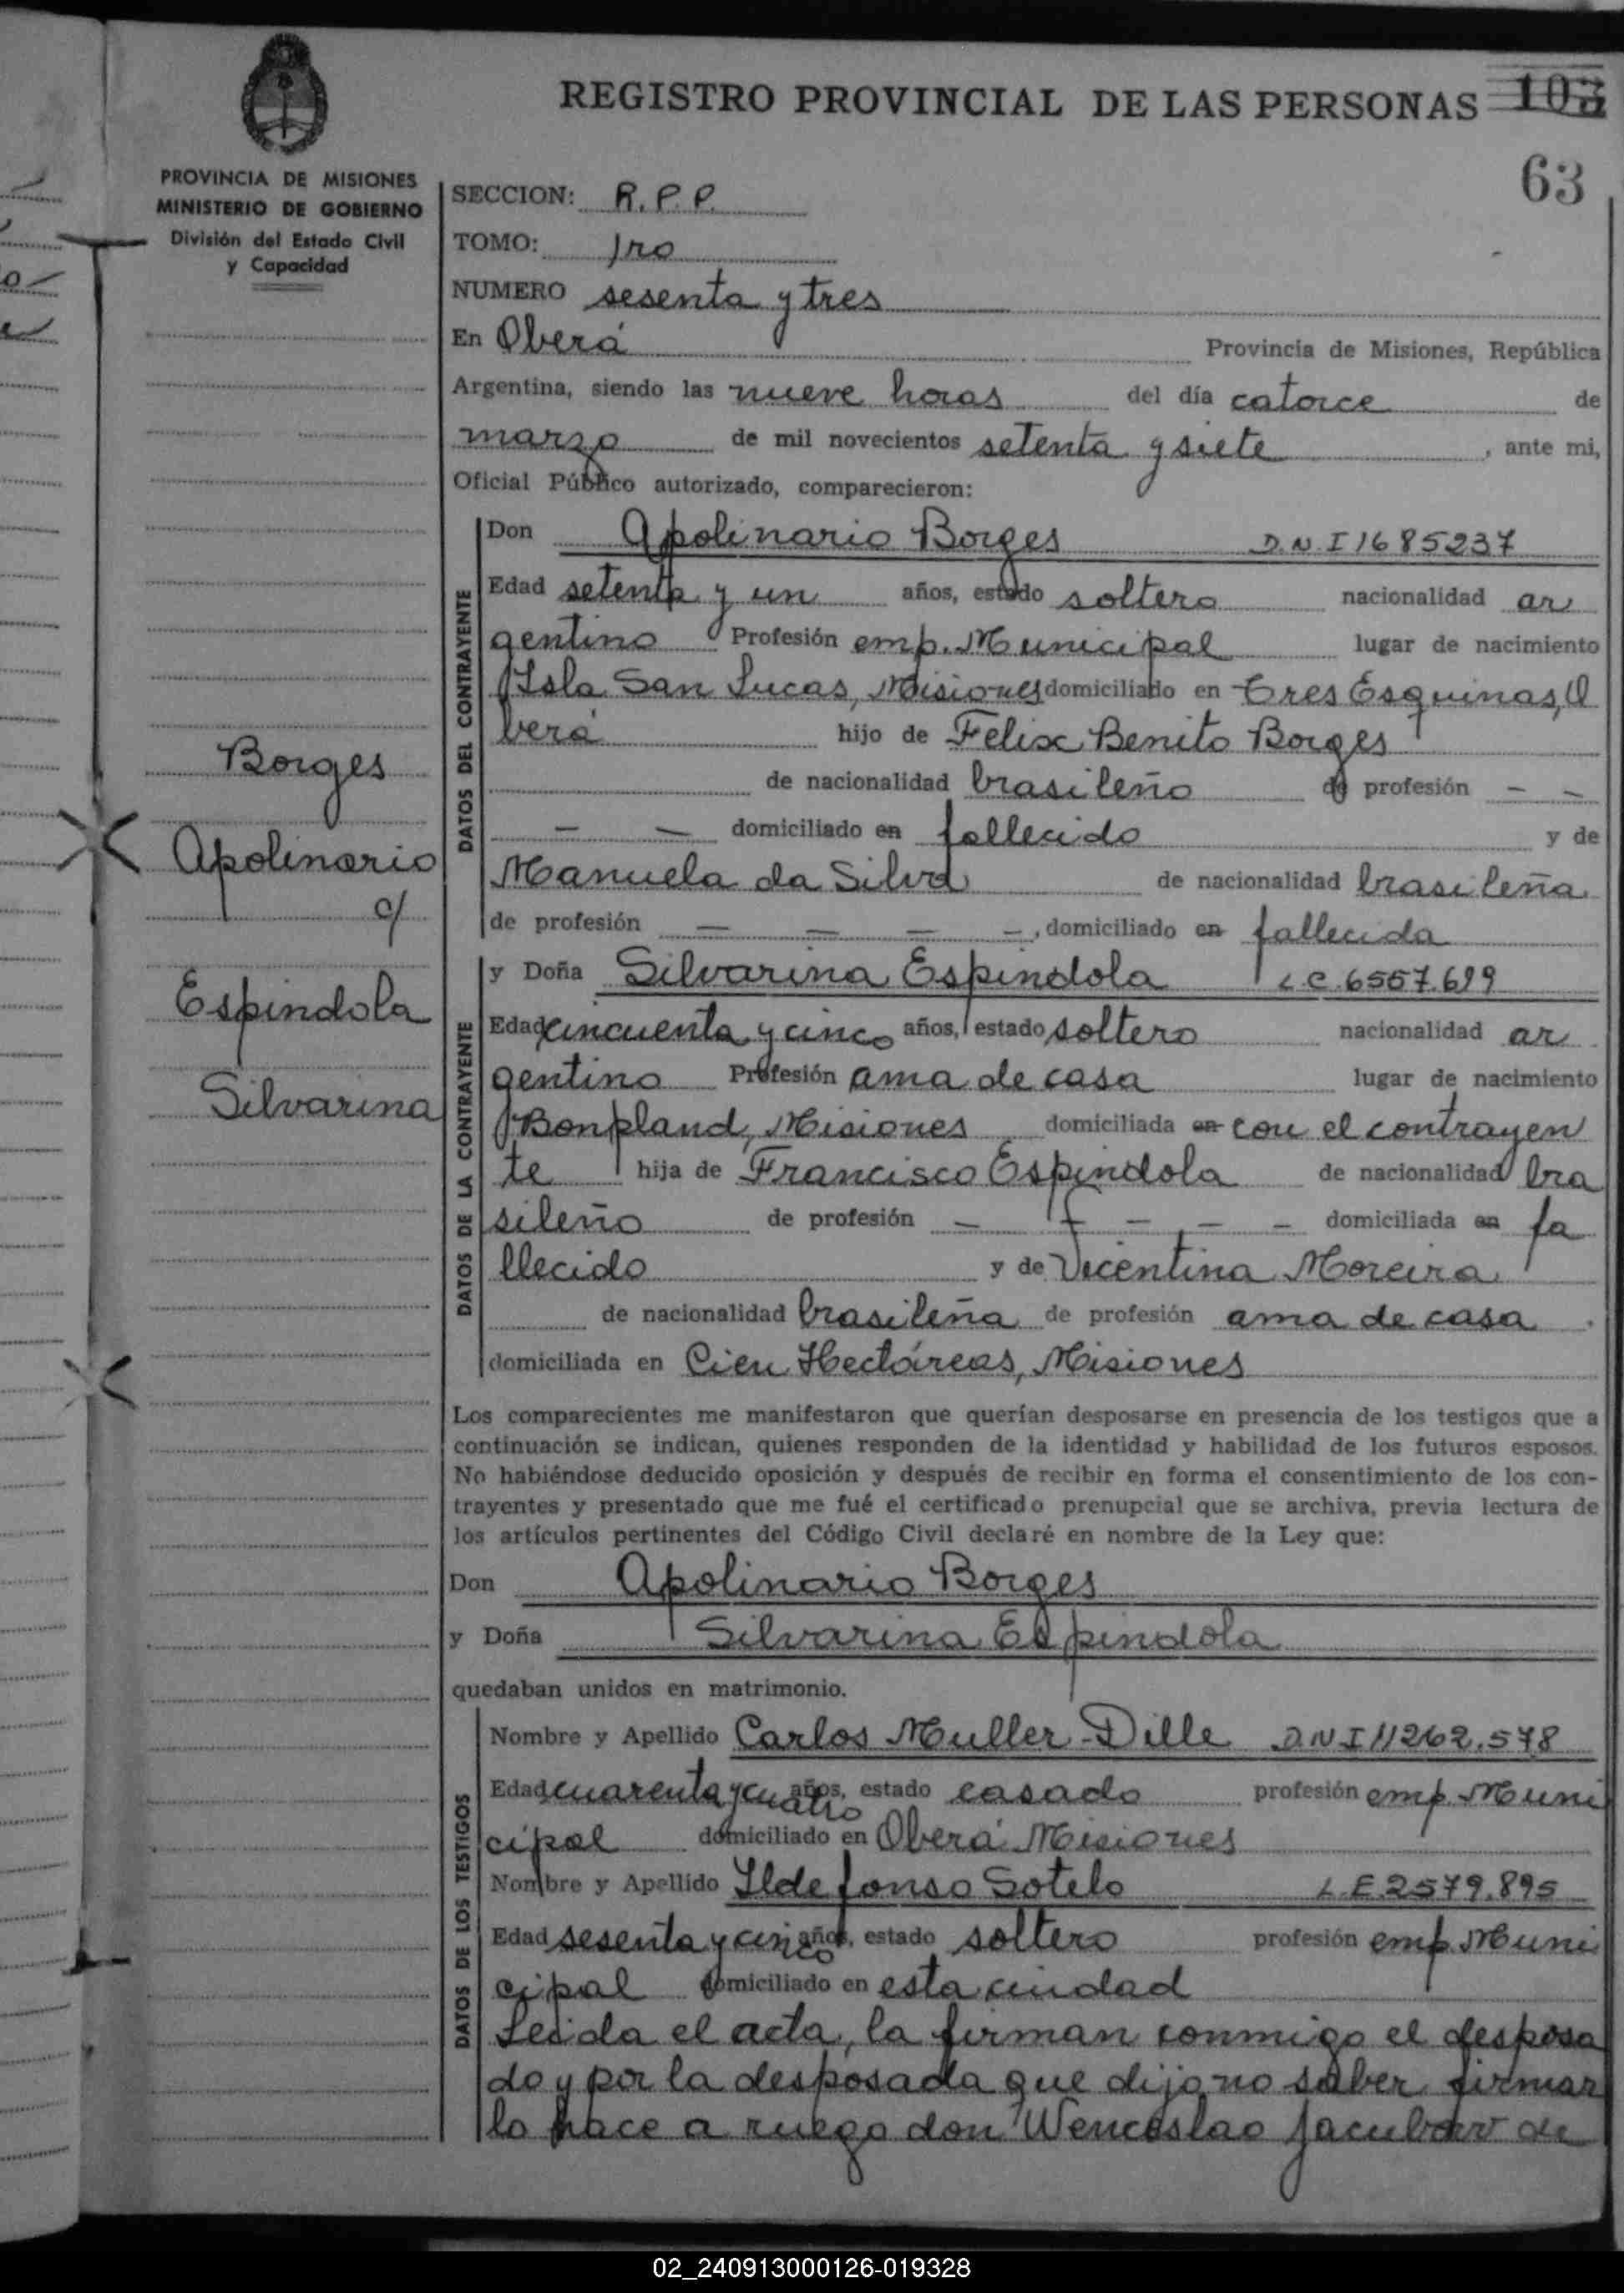 REGISTRO PROVINCIAL DE LAS PERSONAS 103
63
PROVINCIA DE MISIONES
MINISTERIO DE GOBIERNO
División del Estado Civil
y Capacidad
Borges
Apolinario
c/
Espindola
Silvarina
SECCION: R.P.P.
TOMO: 1ro
NUMERO sesenta y tres
En Oberá Provincia de Misiones, República
Argentina, siendo las nueve horas del día catorce de
marzo de mil novecientos setenta y siete, ante mi,
Oficial Público autorizado, comparecieron:
DATOS DEL CONTRAYENTE
Don Apolinario Borges D.N.I 1685237
Edad setenta y un años, estado soltero nacionalidad ar
gentino Profesión emp. Municipal lugar de nacimiento
Isla San Lucas, Misiones domiciliado en Tres Esquinas, O
berá hijo de Felix Benito Borges
de nacionalidad brasileño de profesión – –
– – domiciliado en fallecido y de
Manuela da Silva de nacionalidad brasileña
de profesión – – – –, domiciliado en fallecida
DATOS DE LA CONTRAYENTE
y Doña Silvarina Espindola L.C. 6557.699
Edad cincuenta y cinco años, estado soltero nacionalidad ar
gentino Profesión ama de casa lugar de nacimiento
Bonpland, Misiones domiciliada en con el contrayen
te hija de Francisco Espindola de nacionalidad bra
sileño de profesión – – – – – domiciliada en fa
llecido y de Vicentina Moreira
de nacionalidad brasileña de profesión ama de casa.
domiciliada en Cien Hectáreas, Misiones
Los comparecientes me manifestaron que querían desposarse en presencia de los testigos que a
continuación se indican, quienes responden de la identidad y habilidad de los futuros esposos.
No habiéndose deducido oposición y después de recibir en forma el consentimiento de los con-
trayentes y presentado que me fué el certificado prenupcial que se archiva, previa lectura de
los artículos pertinentes del Código Civil declaré en nombre de la Ley que:
Don Apolinario Borges
y Doña Silvarina Espindola
quedaban unidos en matrimonio.
DATOS DE LOS TESTIGOS
Nombre y Apellido Carlos Muller-Dille D.N.I 11262.578
Edad cuarenta y cuatro años, estado casado profesión emp. Muni
cipal domiciliado en Oberá Misiones
Nombre y Apellido Ildefonso Sotelo L.E. 2579.895
Edad sesenta y cinco años, estado soltero profesión emp. Muni
cipal domiciliado en esta ciudad
Leida el acta, la firman conmigo el desposa
do y por la desposada que dijo no saber firmar
lo hace a ruego don Wenceslao de
02_240913000126-019328